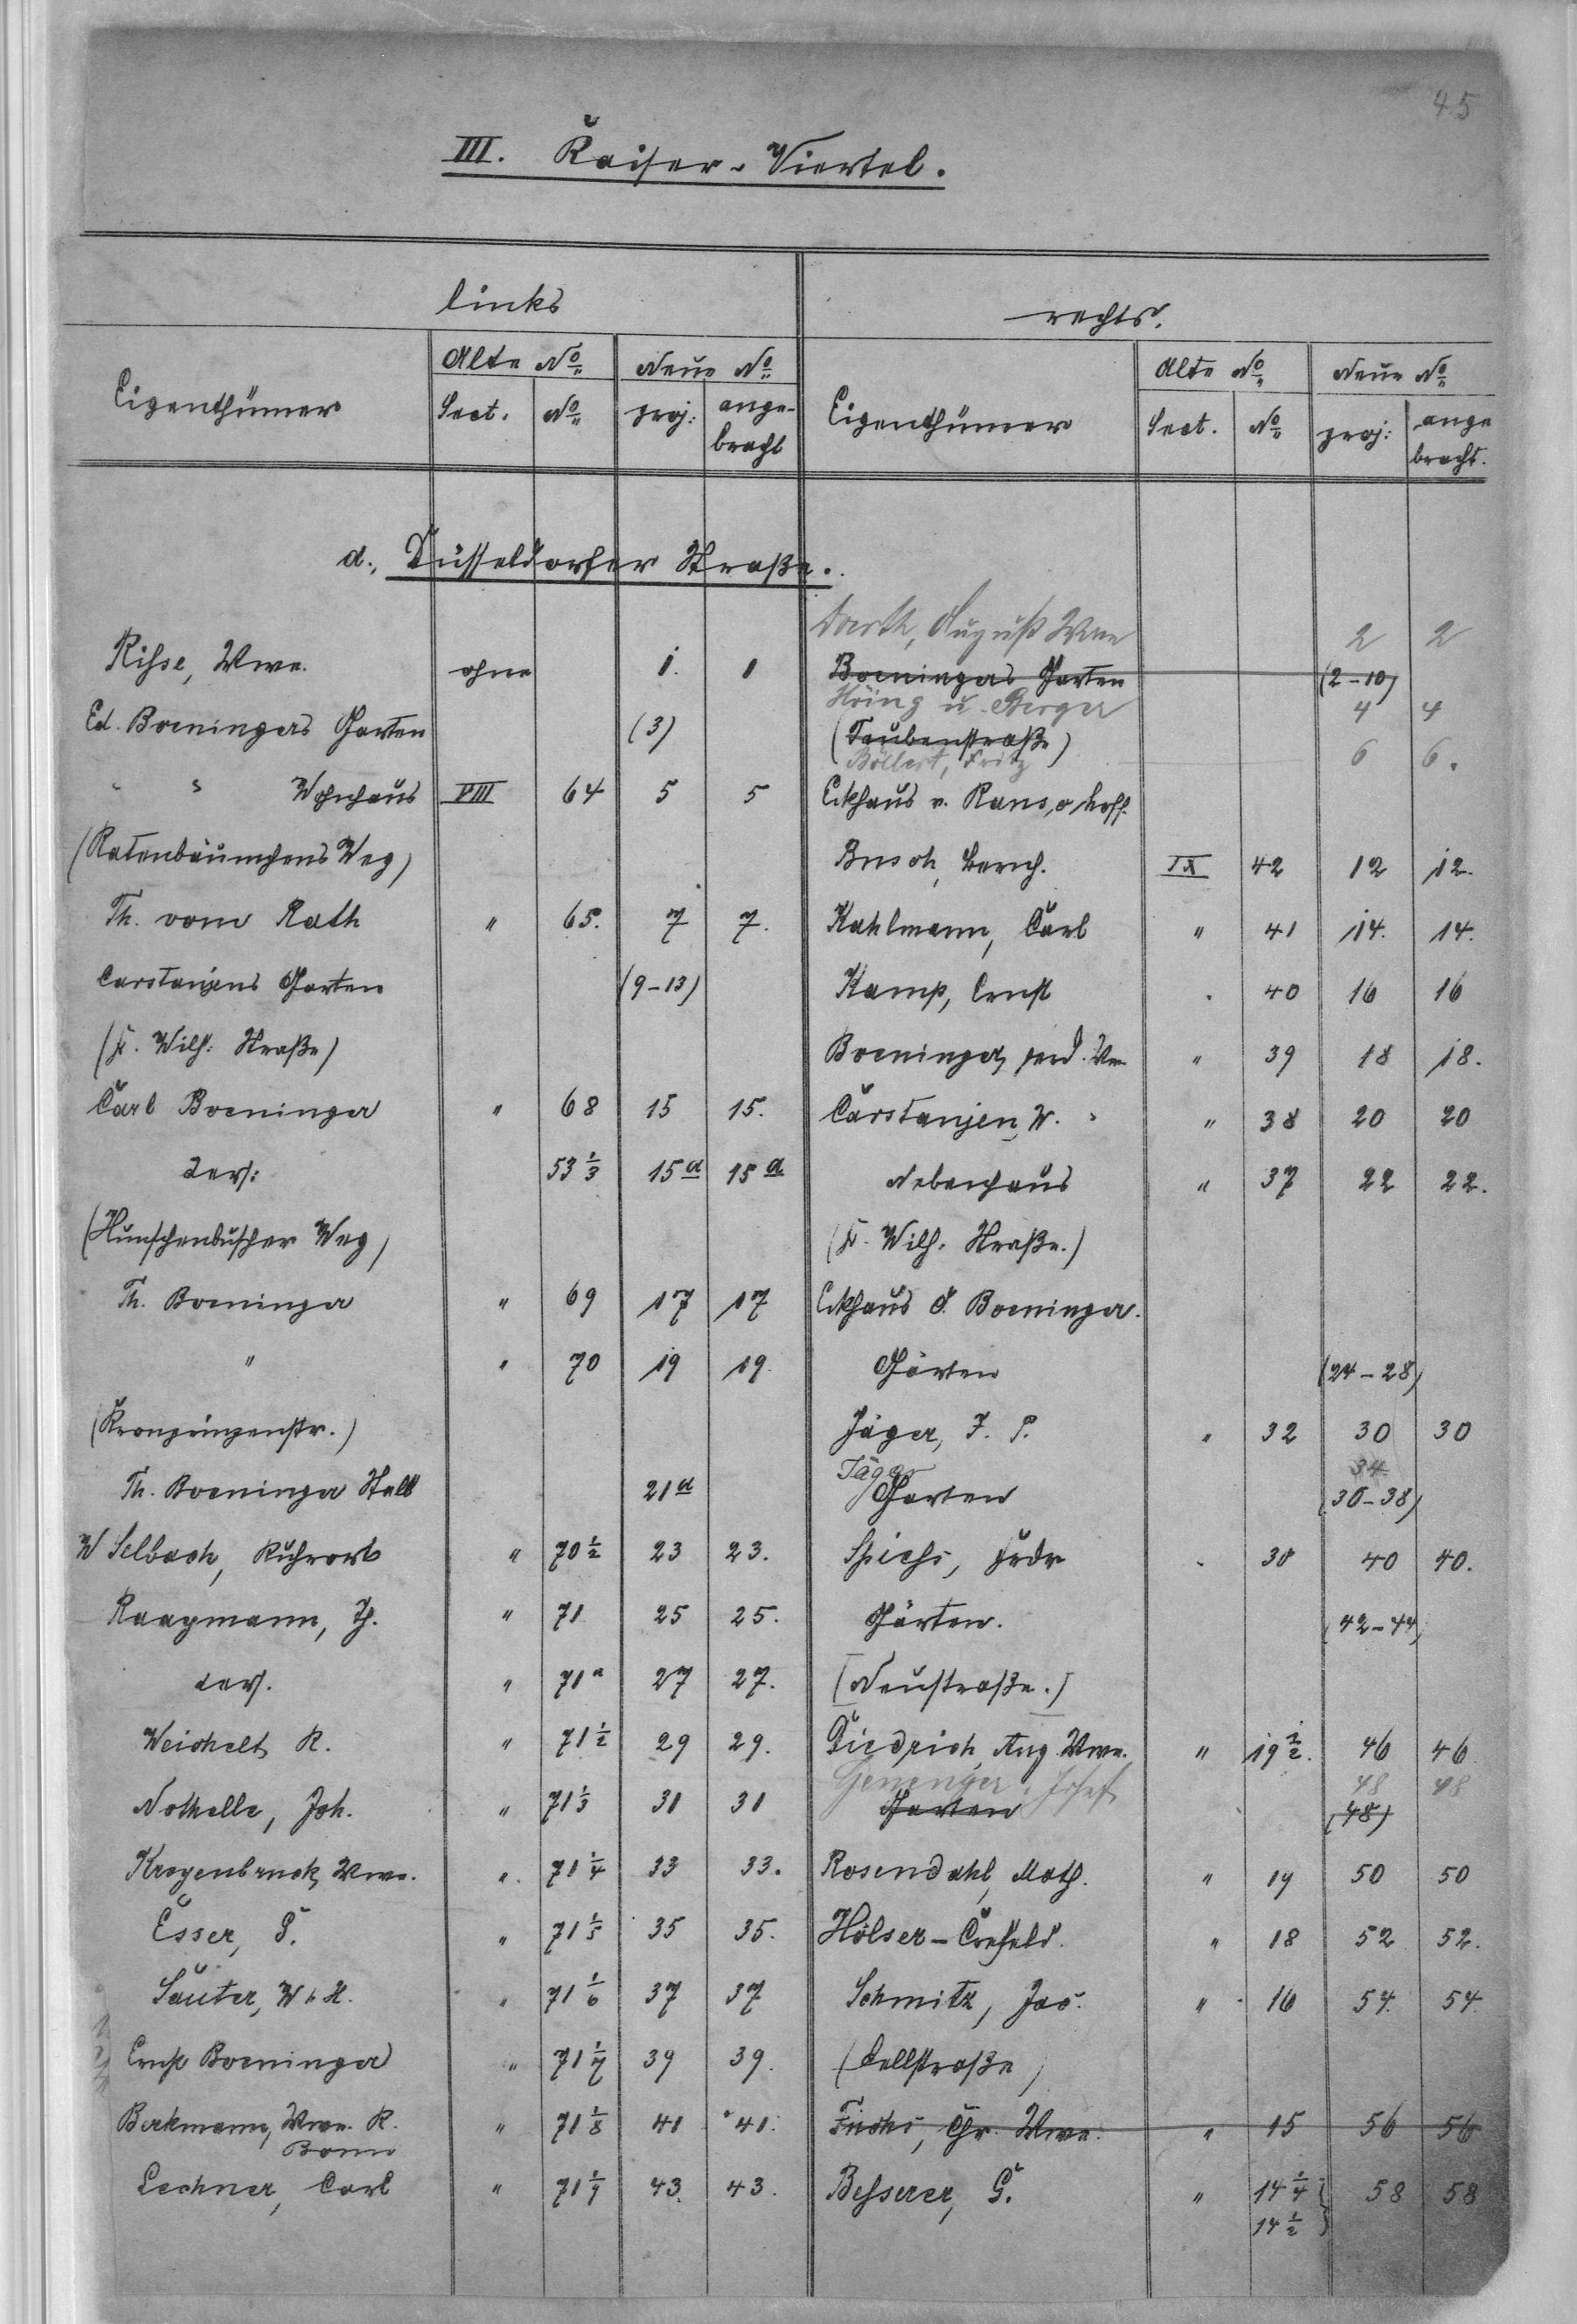 45
III. Kaiser-Viertel.
links
rechts.
Eigenthümer
Alte No
Neue No
Sect. No proj: ange-
bracht
Eigenthümer
Alte No
Neue No
Sect. No proj: ange
bracht.
d., Düsseldorfer Straße.
August Wwe 2 2
Risse, Wwe. ohne 1. 1
Boeningers Garten (2-10)
Höing u. Berger 4 4
Ed. Boeningers Garten (3)
(Taubenstraße)
Böllert, Fritz 6 6.
" " Wohnhaus VIII 64 5 5
Eckhaus v.
(Ratenbäumchens Weg)
Busch, Bernh. IX 42 12 12.
Th. vom Rath " 65. 7 7.
Kahlmann, Carl " 41 14. 14.
Carstanjens Garten (9-13)
Kamp, Ernst " 40 16 16
(Fr. Wilh: Straße)
Boeninger, Ferd. Ww. " 39 18 18.
Carl Boeninger " 68 15 15.
Carstanjen, W. " 38 20 20
ders: 53 1/3 15a 15a
Nebenhaus " 37 22 22.
(Hunschenbuscher Weg)
(Fr. Wilh. Straße.)
Th. Boeninger " 69 17 17
Eckhaus A. Boeninger.
" " 70 19 19.
Gärten (24-28)
(Kronprinzenstr.)
Jäger, F. P. " 32 30 30
34
Th. Boeninger Stall 21a
Jäger
Garten (36-38)
W Selbach, Ruhrort " 70 1/2 23 23.
Spichs, Frdr " 30 40 40.
Raapmann, Th. " 71 25 25.
Gärten. (42-44)
ders. " 71a 27 27.
[Neustraße.]
Weichelt R. " 71 1/2 29 29.
Diedrich, Aug. Wwe. " 19 1/2. 46 46
Genenger, Josef 48 48
Nothelle, Joh. " 71 1/3 31 31
Garten (48)
Kroyenbruck, Wwe. " 71 1/4 33 33.
Rosendahl, Math. " 19 50 50
Esser, G. " 71 1/5 35 35.
Hölser-Crefeld. " 18 52 52.
Sauter, W. H. " 71 1/6 37 37
Schmitz, Jac. " 16 54. 54
Ernst Boeninger " 71 1/7 39 39.
(Cellstraße)
Berkmann, Wwe. R. " 71 1/8 41 41.
Bonn
Fuchs, Chr. Wwe. " 15 56 56
Lechner, Carl " 71 1/9 43. 43.
Besserer, G. " 14 1/4 } 58 58
14 1/2 }